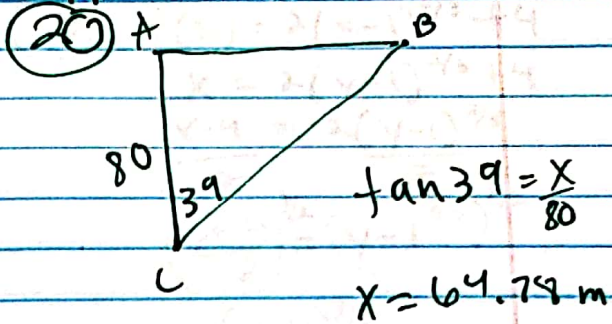 20 A B
80
39
tan39 = x/80
C
x = 64.78 m